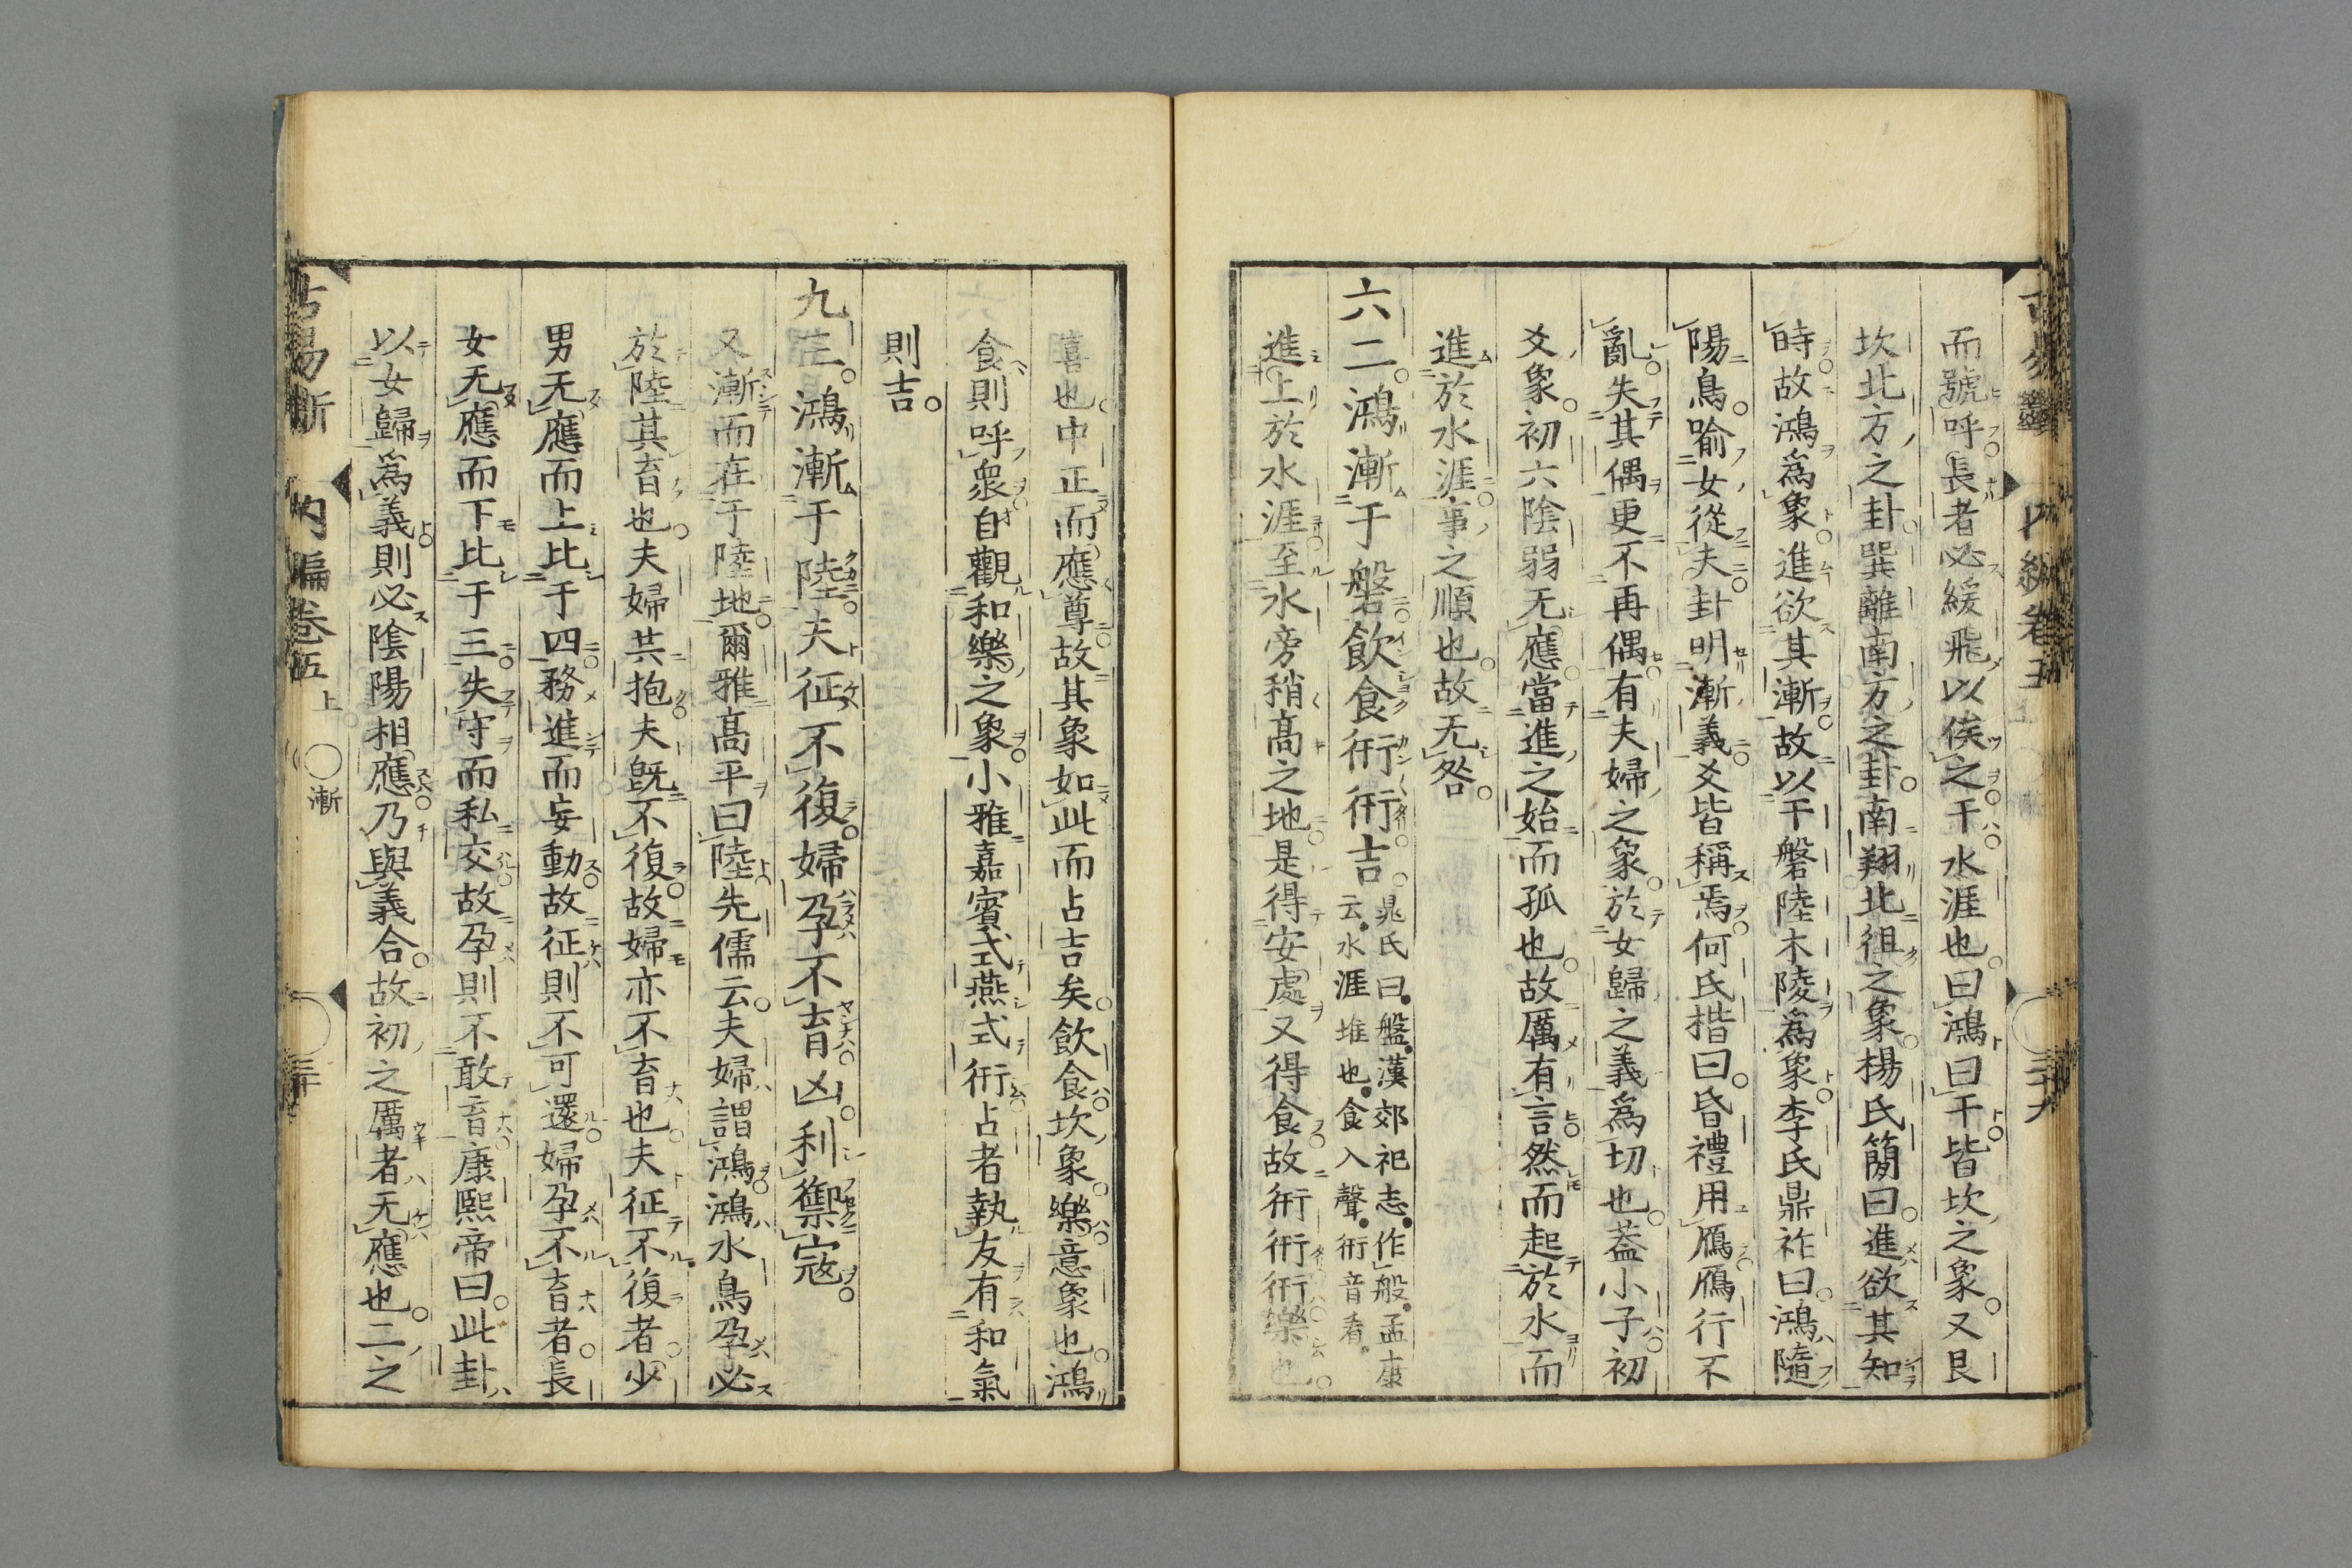 而號呼長者必緩飛以俟之干水涯也曰鴻曰干皆坎之象又艮
坎北方之卦巽離南方之卦南翔北徂之象楊氏簡曰進欲其知
時故鴻爲象進欲其漸故以干磐陸木陵爲象李氏鼎祚曰鴻隨
陽鳥喻女從夫卦明漸義爻皆稱焉何氏楷曰昏禮用鴈鴈行不
亂失其偶更不再偶有夫婦之象於女歸之義爲切也蓋小子初
爻象初六陰弱无應當進之始而孤也故厲有言然而起於水而
進於水涯事之順也故无咎
六二鴻漸于磐飮食衎衎吉
晁氏曰盤漢郊祀志作般孟康
云水涯堆也食入聲衎音看
進上於水涯至水旁稍高之地是得安處又得食故衎衎衎樂也
三十九
禧也中正而應尊故其象如此而占吉矣飮食坎象樂意象也鴻
食則呼衆自觀和樂之象小雅嘉賓式燕式衎占者執友有和氣
則吉
九三鴻漸于陸夫征不復婦孕不育凶利禦寇
又漸而在于陸地爾雅高平曰陸先儒云夫婦謂鴻鴻水鳥孕必
於陸其育也夫婦共抱夫旣不復故婦亦不育也夫征不復者少
男无應而上比于四務進而妄動故征則不可還婦孕不育者長
女无應而下比于三失守而私交故孕則不敢育康熙帝曰此卦
以女歸爲義則必陰陽相應乃與義合故初之厲者无應也二之
古易斷 內編卷五上 漸